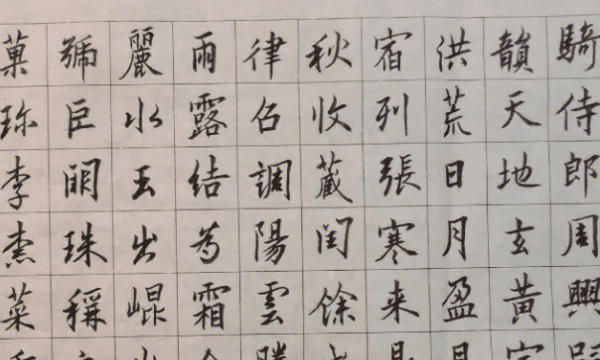 騎侍郎周興
韻天地玄黃
洪荒日月盈
宿列張寒来
秋收藏閏餘
律召調陽雲
雨露結為霜
麗水玉出崐
號巨闕珠稱
菓珎李柰菜